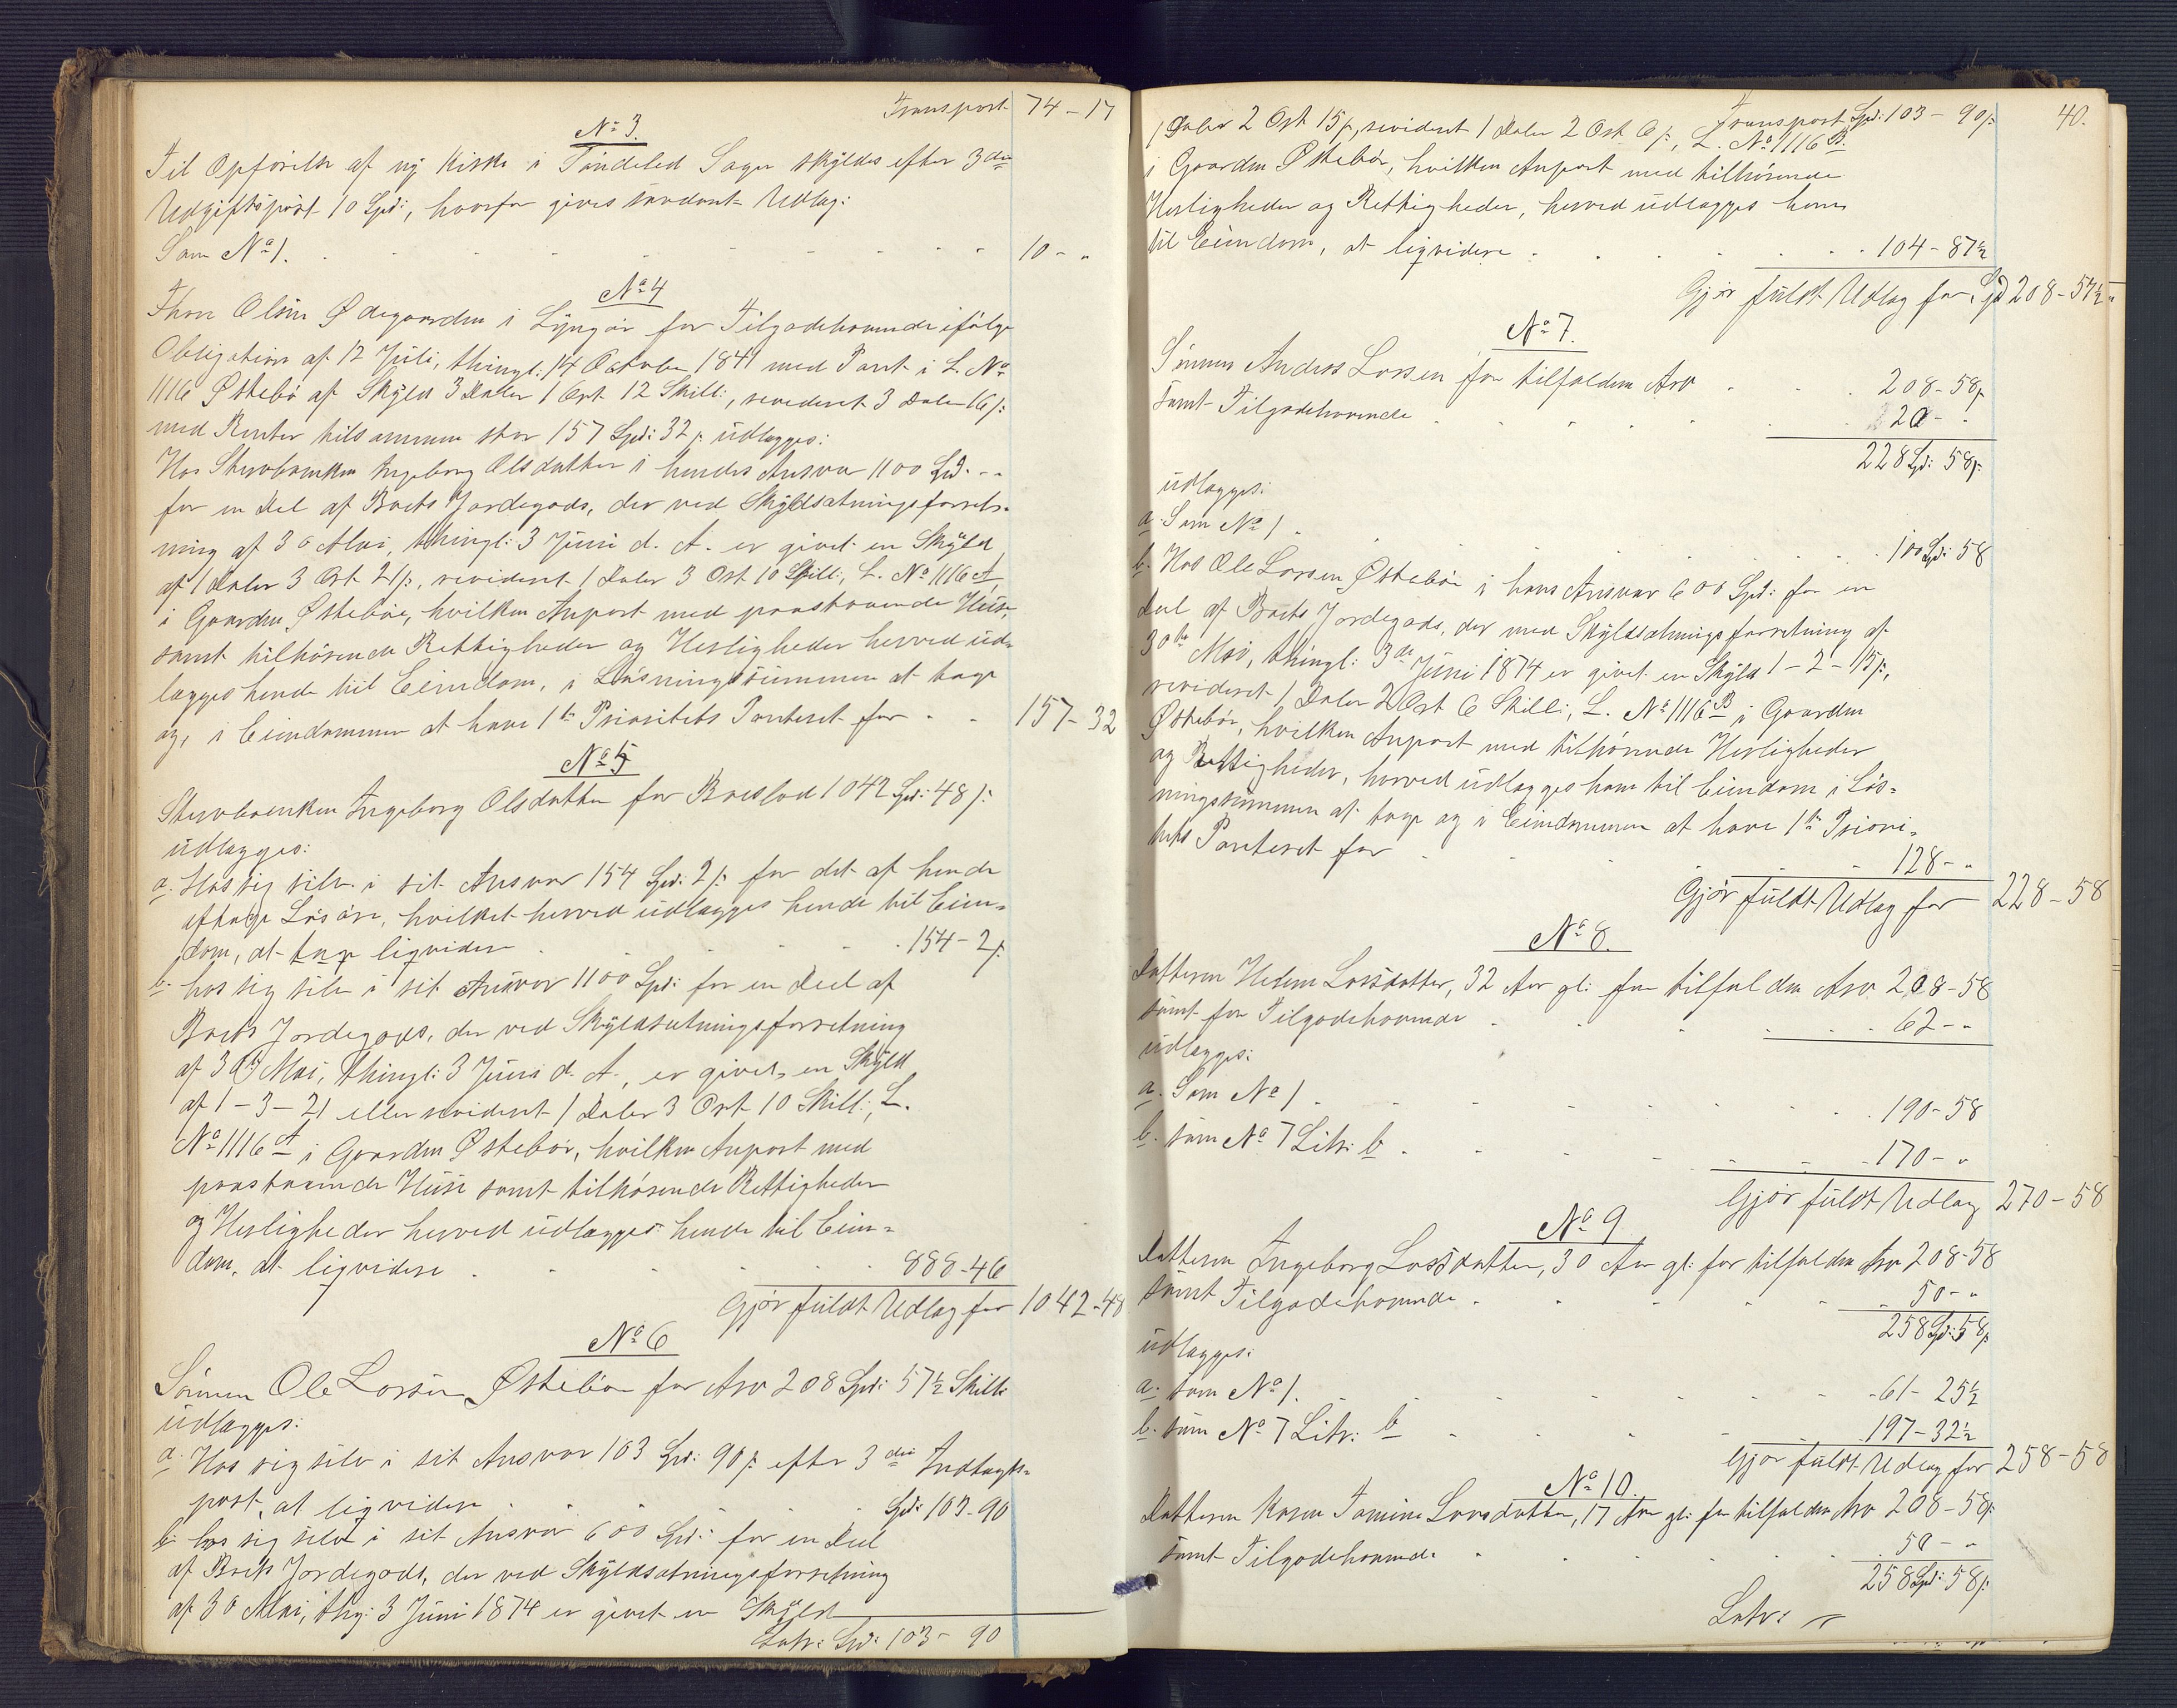 Transport 74 - 17
No 3.
Til Opförelse af ny Kirke i Söndeled Sogn skyldes efter 3die
Udgiftspost 10 Spd:, hvorfor gives saadant Udlag:
Som No 1. 10 - "
No 4
Thore Olsen Ødegaarden i Lyngör for Tilgodehavende ifölge
Obligation af 12 Juli, thingl: 14 October 1841 med Pant i L. No
1116 Østebö af Skyld 3 Daler 1 Ort 12 Skill:, revideret 3 Daler 16 s:
med Renter tilsammen stor 157 Spd: 32 s: udlægges:
Hos Stervboenken Ingeborg Olsdatter i hendes Ansvar 1100 Spd. - -
for en Del af Boets Jordegods, der ved Skyldsætningsforret-
ning af 30 Mai, thingl: 3 Juni d. A. er givet en Skyld
af 1 Daler 3 Ort 21 s:, revideret 1 Daler 3 Ort 10 Skill:, L. No 1116 A
i Gaarden Østeböe, hvilken Anpart med paastaaende Huse,
samt tilhörende Rettigheder og Herligheder herved ud-
lægges hende til Eiendom, i Lösningssummen at tage
og, i Eiendommen at have 1te Prioritets Panteret for 157 - 32
No 5
Stervboenken Ingeborg Olsdatter for Boeslod 1042 Spd: 48 s:
udlægges:
a. Hos sig selv i sit Ansvar 154 Spd. 2 s: for det af hende
aftagne Lösöre, hvilket herved udlægges hende til Eien-
dom, at liqvidere 154 - 2 s:
b. hos sig selv i sit Ansvar 1100 Spd: for en Deel af
Boets Jordegods, der ved Skyldsætningsforretning
af 30 Mai, thingl: 3 Juni d. A., er givet en Skyld
af 1 - 3 - 21 eller revideret 1 Daler 3 Ort 10 Skill:, L.
No 1116 A i Gaarden Østebör, hvilken Anpart med
paastaaende Huse samt tilhörende Rettigheder
og Herligheder herved udlægges hende til Eien-
dom, at liqvidere 888 - 46
Gjör fuldt Udlag for 1042 - 48
No 6
Sönnen Ole Larsen Østeböe for Arv 208 Spd: 57½ Skill:
udlægges:
a. Hos sig selv i sit Ansvar 103 Spd: 90 s: efter 3die Indtægts-
post, at liqvidere Spd: 103 - 90
b. hos sig selv i sit Ansvar 600 Spd: for en Deel
af Boets Jordegods, der ved Skyldsætningsforretning
af 30 Mai, thg: 3 Juni 1874 er givet en Skyld
Latr: Spd: 103 - 90
Transport Spd: 103 - 90 s: 40.
1 Daler 2 Ort 15 s:, revideret 1 Daler 2 Ort 6 s:, L. No 1116 B.
i Gaarden Østebör, hvilken Anpart med tilhörende
Herligheder og Rettigheder, herved udlægges ham
til Eiendom, at liqvidere 104 - 87½
Gjör fuldt Udlag for Spd 208 - 57½ "
No 7.
Sönnen Andres Larsen for tilfalden Arv 208 - 58 s:
samt Tilgodehavende 20 - "
228 Spd: 58 s:
udlægges:
a. Som No 1 100 Spd: 58
b. Hos Ole Larsen Østeböe i hans Ansvar 600 Spd: for en
Deel af Boets Jordegods, der med Skyldsætningsforretning af
30te Mai, thingl: 3die Juni 1874 er givet en Skyld 1 - 2 - 15 s:,
revideret 1 Daler 2 Ort 6 Skill:, L. No 1116 B i Gaarden
Østebör, hvilken Anpart med tilhörende Herligheder
og Rettigheder, herved udlægges ham til Eiendom i Lös-
ningssummen at tage og i Eiendommen at have 1te Priori-
tets Panteret for 128 - "
Gjör fuldt Udlag for 228 - 58
No 8.
Datteren Helene Larsdatter, 32 Aar gl: for tilfalden Arv 208 - 58
samt for Tilgodehavende 62 - "
udlægges:
a. Som No 1 190 - 58
b. som No 7 Litr: b 170 - "
Gjör fuldt Udlag 270 - 58
No 9
Datteren Ingeborg Larsdatter, 30 Aar gl: for tilfalden Arv 208 - 58
samt Tilgodehavende 50 - "
258 Spd: 58 s:
udlægges:
a. som No 1. 61 - 25½
b. som No 7 Litr: b 197 - 32½
Gjör fuldt Udlag for 258 - 58
No 10.
Datteren Karen Tomine Larsdatter, 17 Aar gl: for tilfalden Arv 208 - 58 s:
samt Tilgodehavende 50 - "
258 Spd: 58 s:
Latr: "